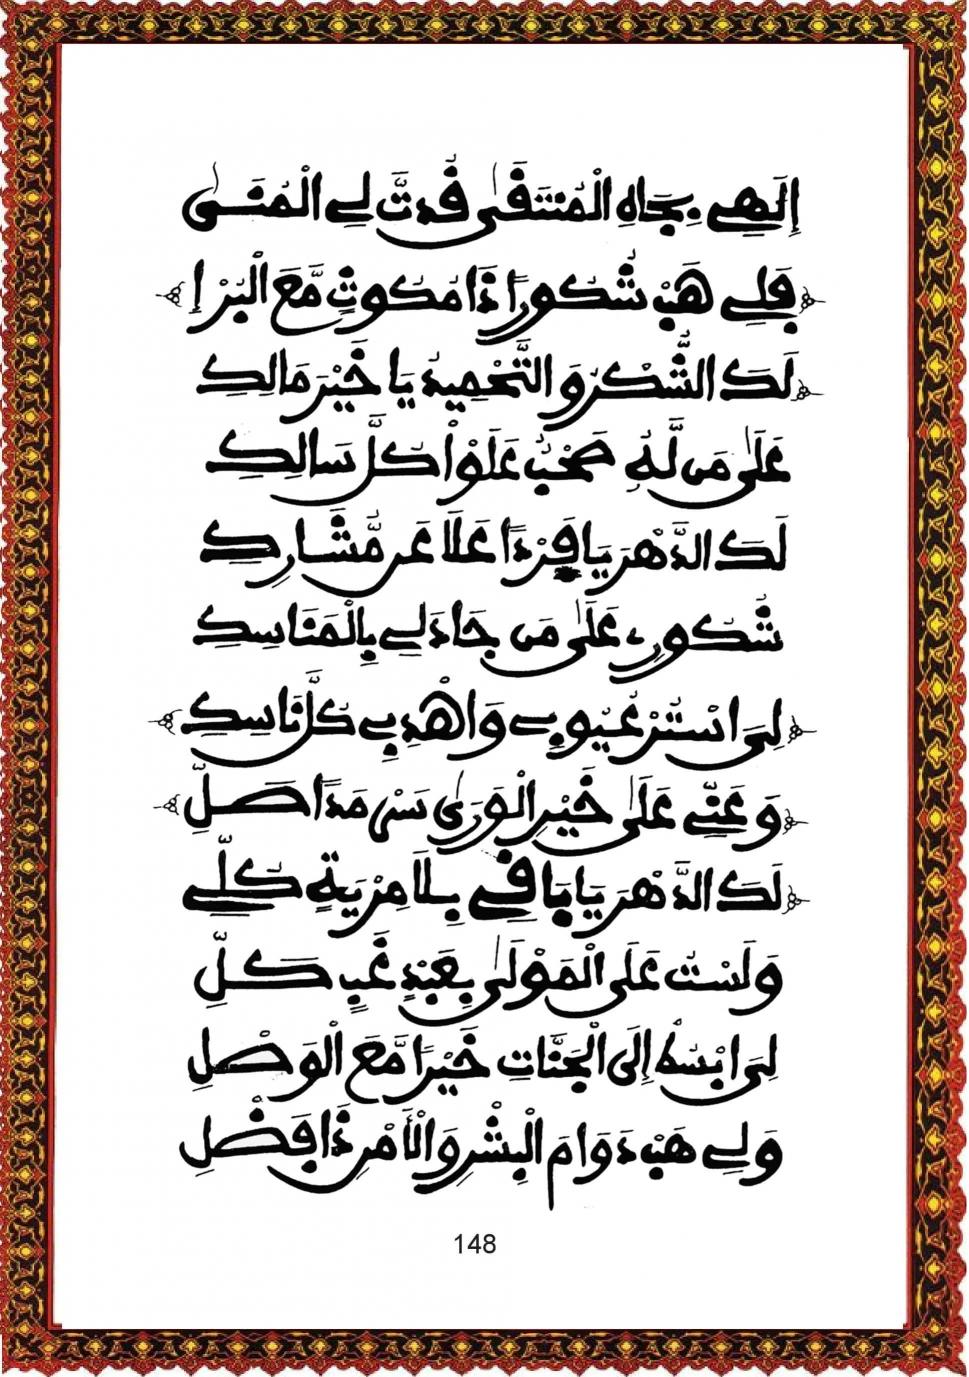 إِلَهِي بِجَاهِ الْمُنْتَقَى قُدتَّ لِي الْمُنَى
فَلِي هَبْ شُكُورًا ذَا مُكُوثٍ مَّعَ الْبُرْإِ
لَكَ الشُّكْرُ وَالتَّحْمِيدُ يَا خَيْرَ مَالِكِ
عَلَى مَن لَّهُ صَحْبٌ عَلَوْا كُلَّ سَالِكِ
لَكَ الدَّهْرَ يَا فَرْدًا عَلَا عَن مُّشَارِكِ
شُكُورِي عَلَى مَن جَادَ لِي بِالْمَنَاسِكِ
لِيَ اسْتُرْ عُيُوبِي وَاهْدِ بِي كُلَّ نَاسِكِ
وَعَنِّي عَلَى خَيْرِ الْوَرَى سَرْمَدًا صَلِّ
لَكَ الدَّهْرَ يَا بَاقِي بِلَا مِرْيَةٍ كُلِّي
وَلَسْتُ عَلَى الْمَوْلَى بِعَبْدٍ غَبٍ كَلِّ
لِيَ ابْسُطْ إِلَى الْجَنَّاتِ خَيْرًا مَّعَ الْوَصْلِ
وَلِي هَبْ دَوَامَ الْبِشْرِ وَالْأَمْرِ ذَا فَضْلِ
148